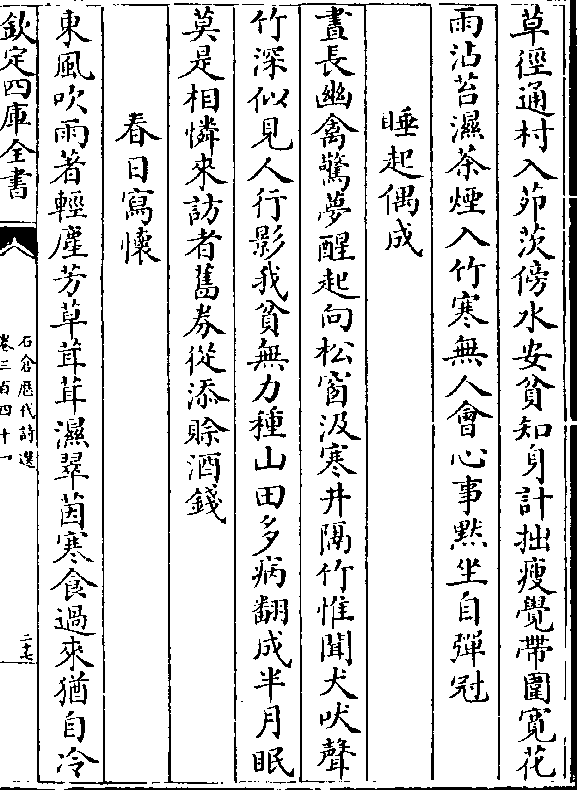 草徑通村入茆茨傍水安貧知身計拙瘦覺帶圍寛花
雨沾苔濕茶煙入竹寒無人會心事黙坐自彈冠
睡起偶成
晝長幽禽驚夢醒起向松窗汲寒井隔竹惟聞犬吠聲
竹深似見人行影我貧無力種山田多病翻成半月眠
莫是相憐來訪者舊券從添賒酒錢
春日寫懷
東風吹雨著輕塵芳草茸茸濕翠茵寒食過來猶自冷
欽定四庫全書
石倉歴代詩選
卷三百四十一
二十七